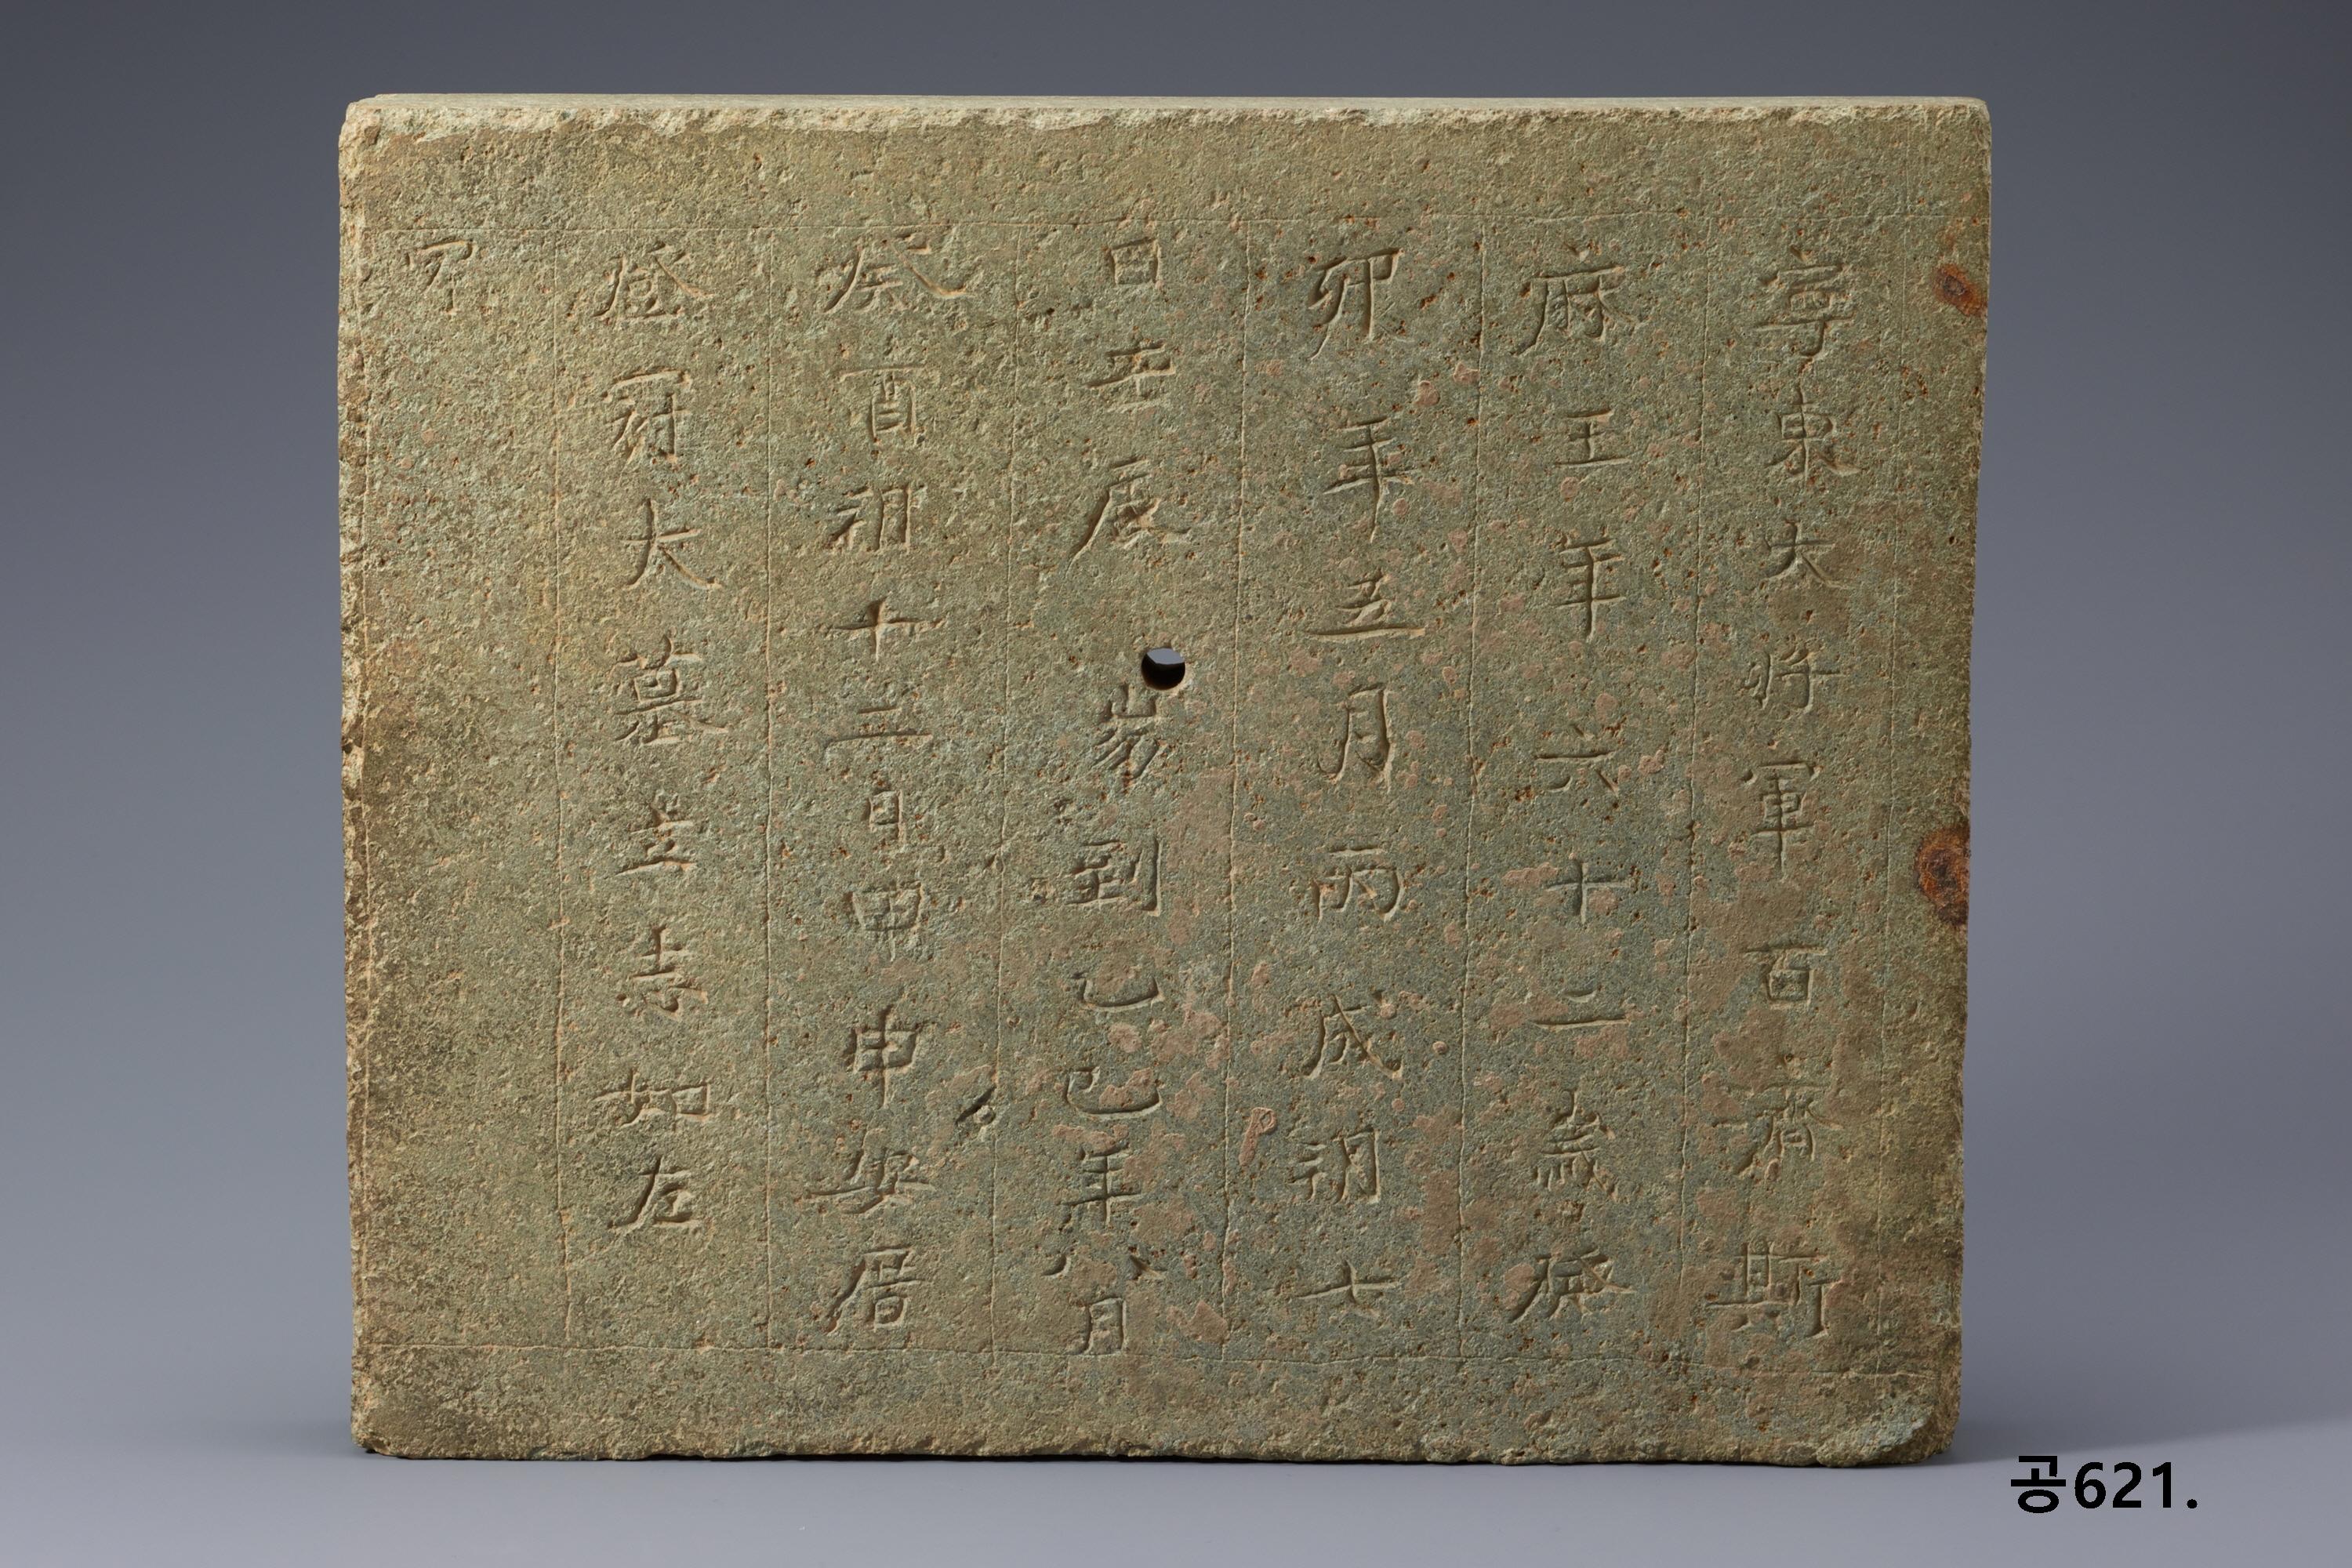 寧東大將軍百濟斯
麻王年六十二歲癸
卯年五月丙戌朔七
日壬辰崩到乙巳年八月
癸酉朔十二日甲申安厝
登冠大墓立志如左
印
공621.